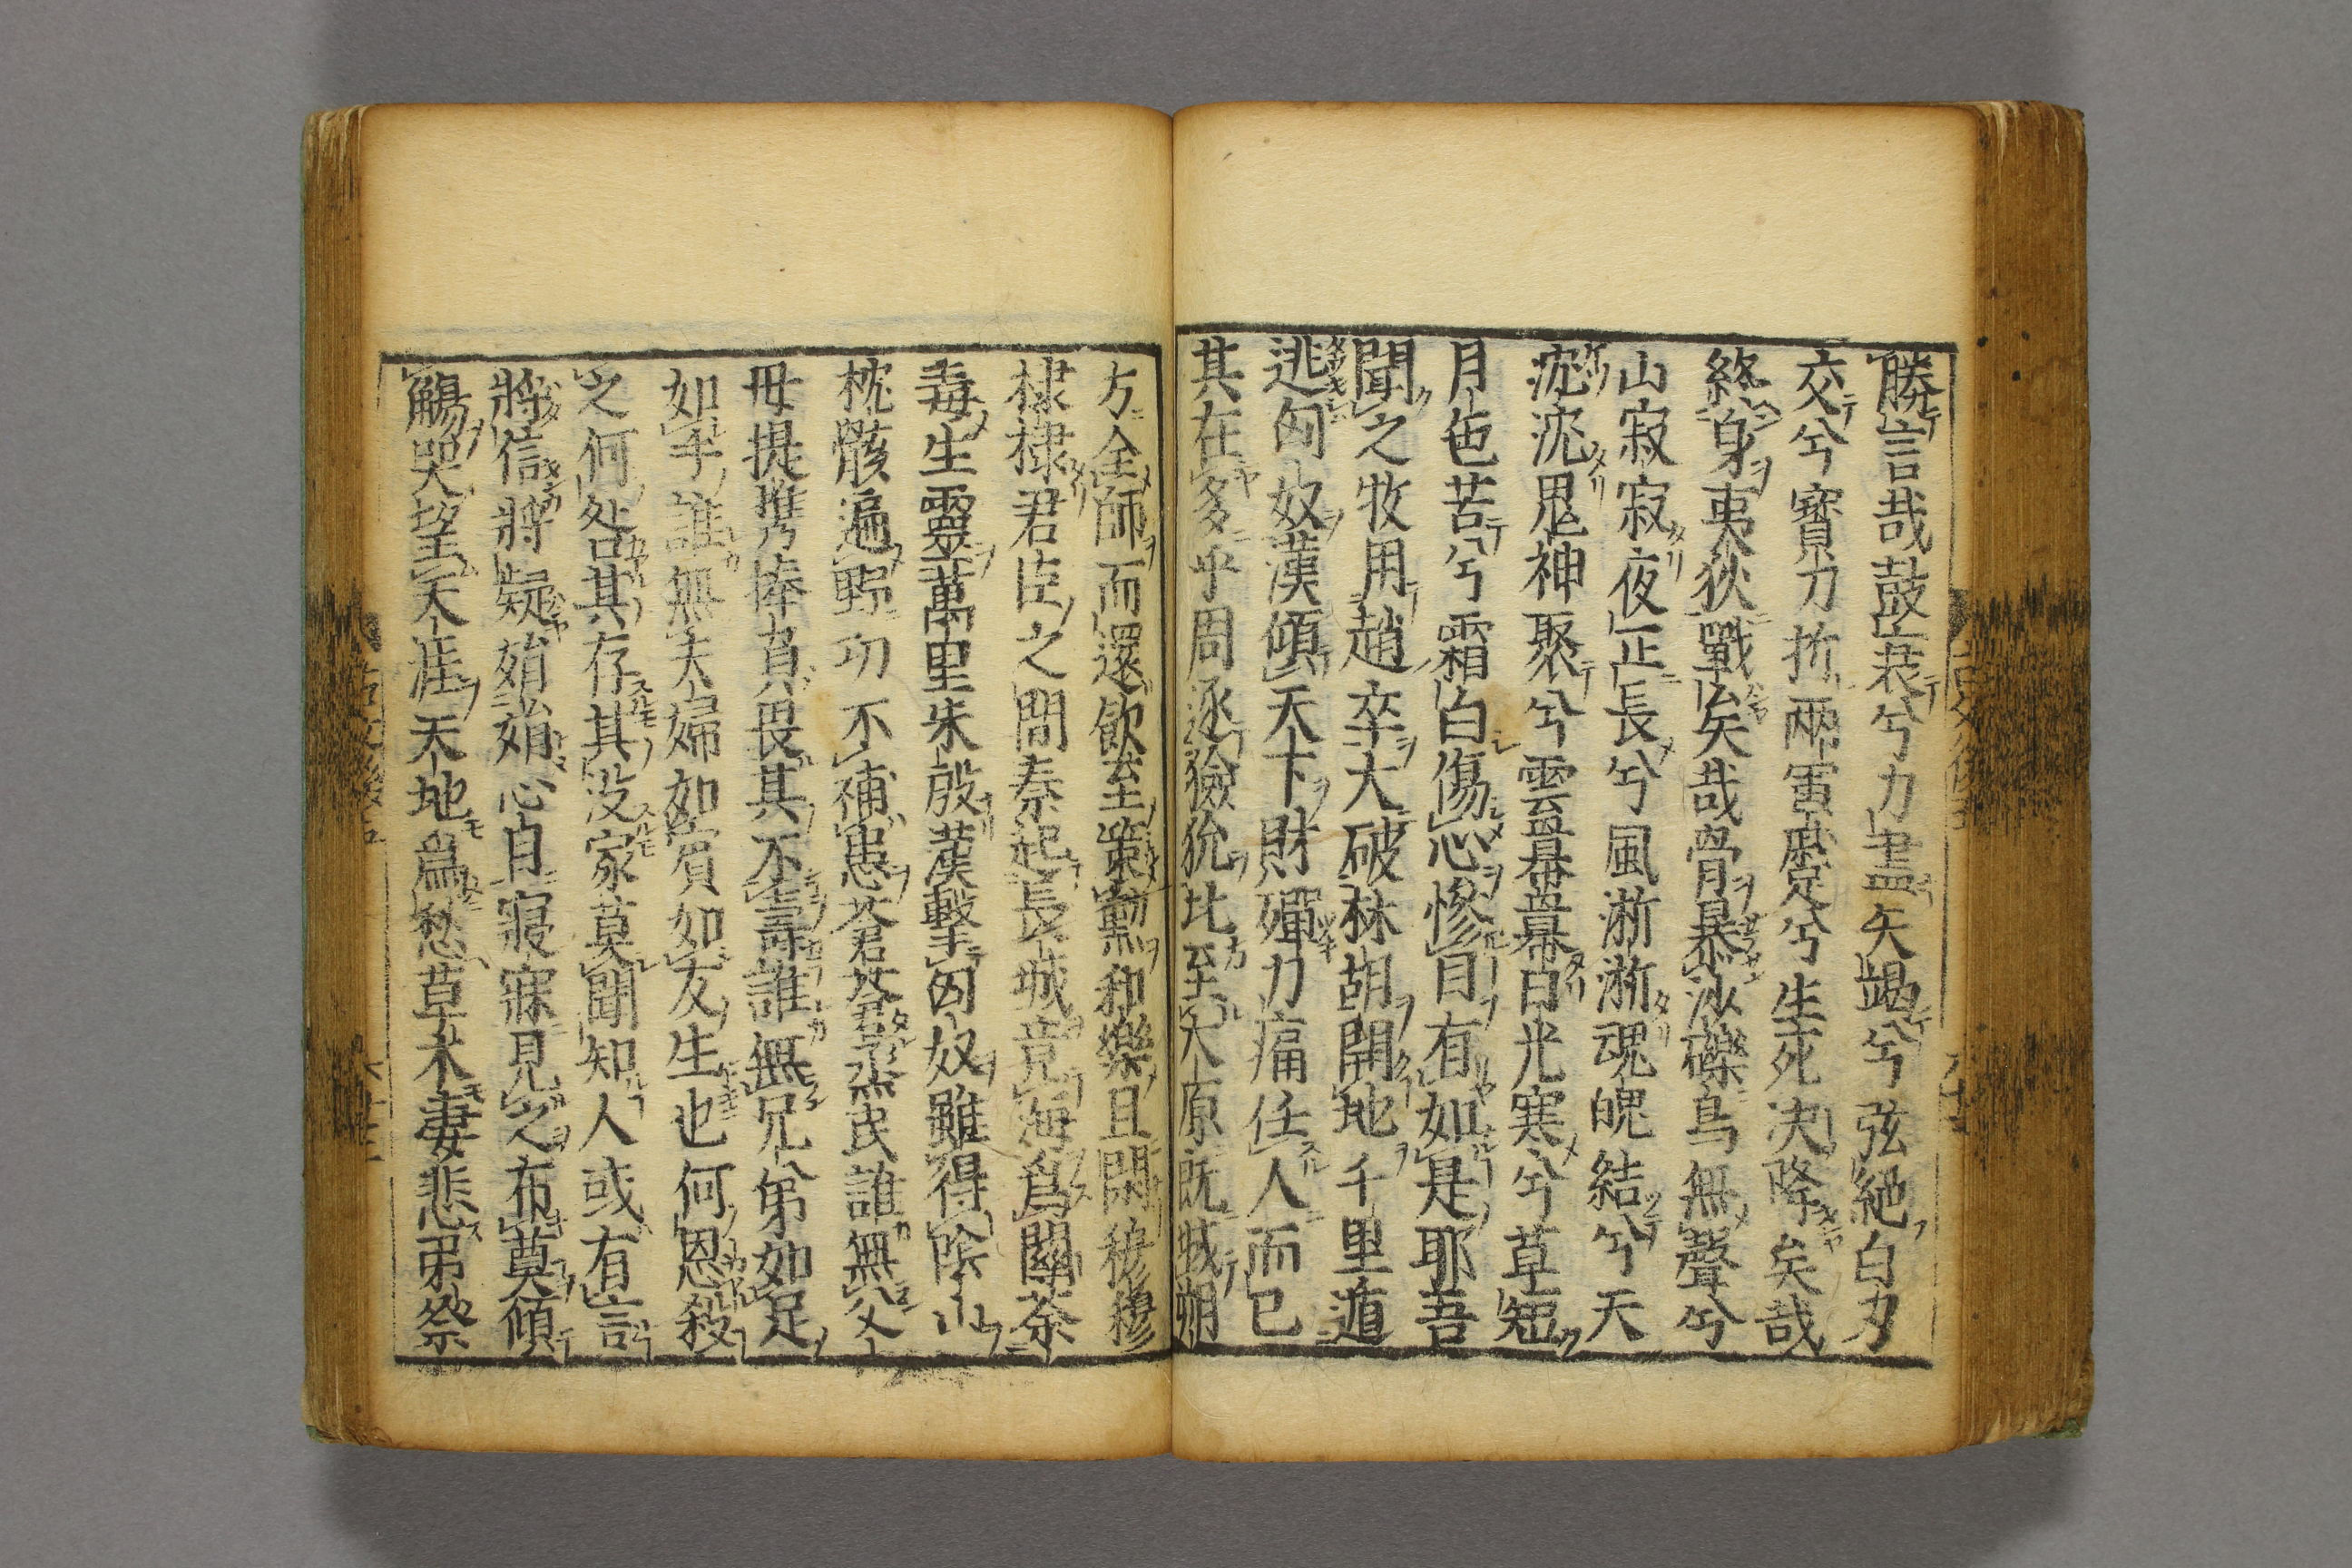 勝言哉鼓衰兮力盡矢竭兮弦絶白刃
交兮寳刀折兩軍蹙兮生死决降矣哉
終身夷狄戰矣哉骨暴沙礫鳥無聲兮
山寂寂夜正長兮風淅淅魂魄結兮天
沈沈鬼神聚兮雲冪冪日光寒兮草短
月色苦兮霜白傷心慘目有如是耶吾
聞之牧用趙卒大破林胡開地千里遁
逃匈奴漢傾天下財殫力痛任人而已
其在多乎周逐獫狁北至大原既城朔
方全師而還飲至策勲和樂且閑穆穆
棣棣君臣之間秦起長城竟海爲關荼
毒生靈萬里朱殷漢擊匈奴雖得陰山
枕骸遍野功不補患蒼蒼烝民誰無父
母提携捧負畏其不壽誰無兄弟如足
如手誰無夫婦如賓如友生也何恩殺
之何咎其存其没家莫聞知人或有言
將信將疑娟娟心目寢寐見之布奠傾
觴哭望天涯天地爲愁草木妻悲弔祭